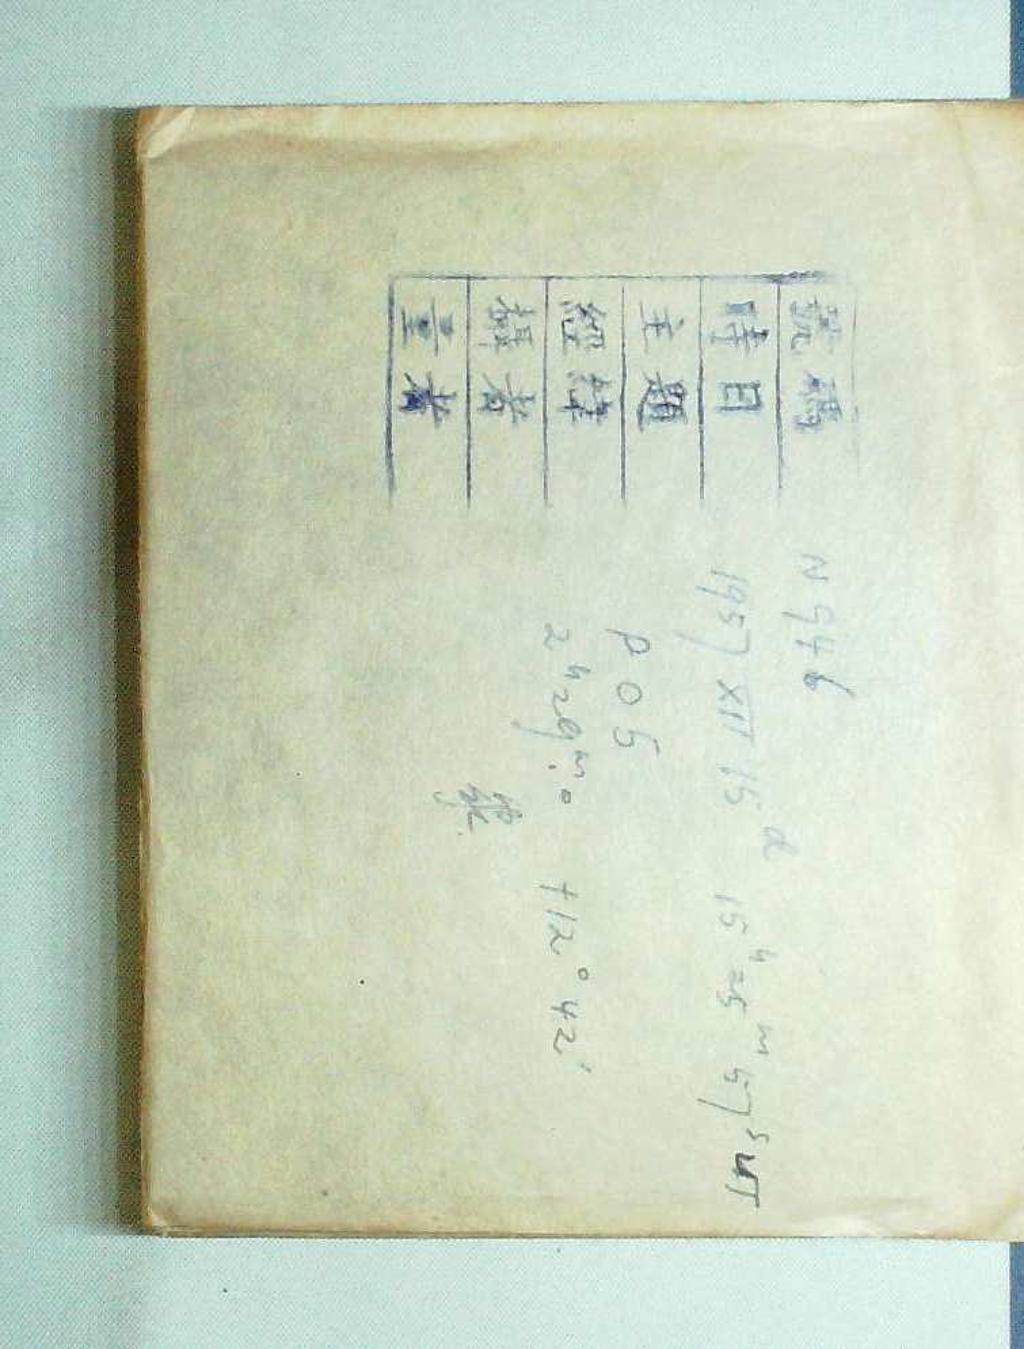 號碼 N 946
時日 1957 XII 15ᵈ 15ʰ 25ᵐ 57ˢ UT
主題 P O 5
經緯 2ʰ29ᵐ.0 +12°42′
攝者 張
量者